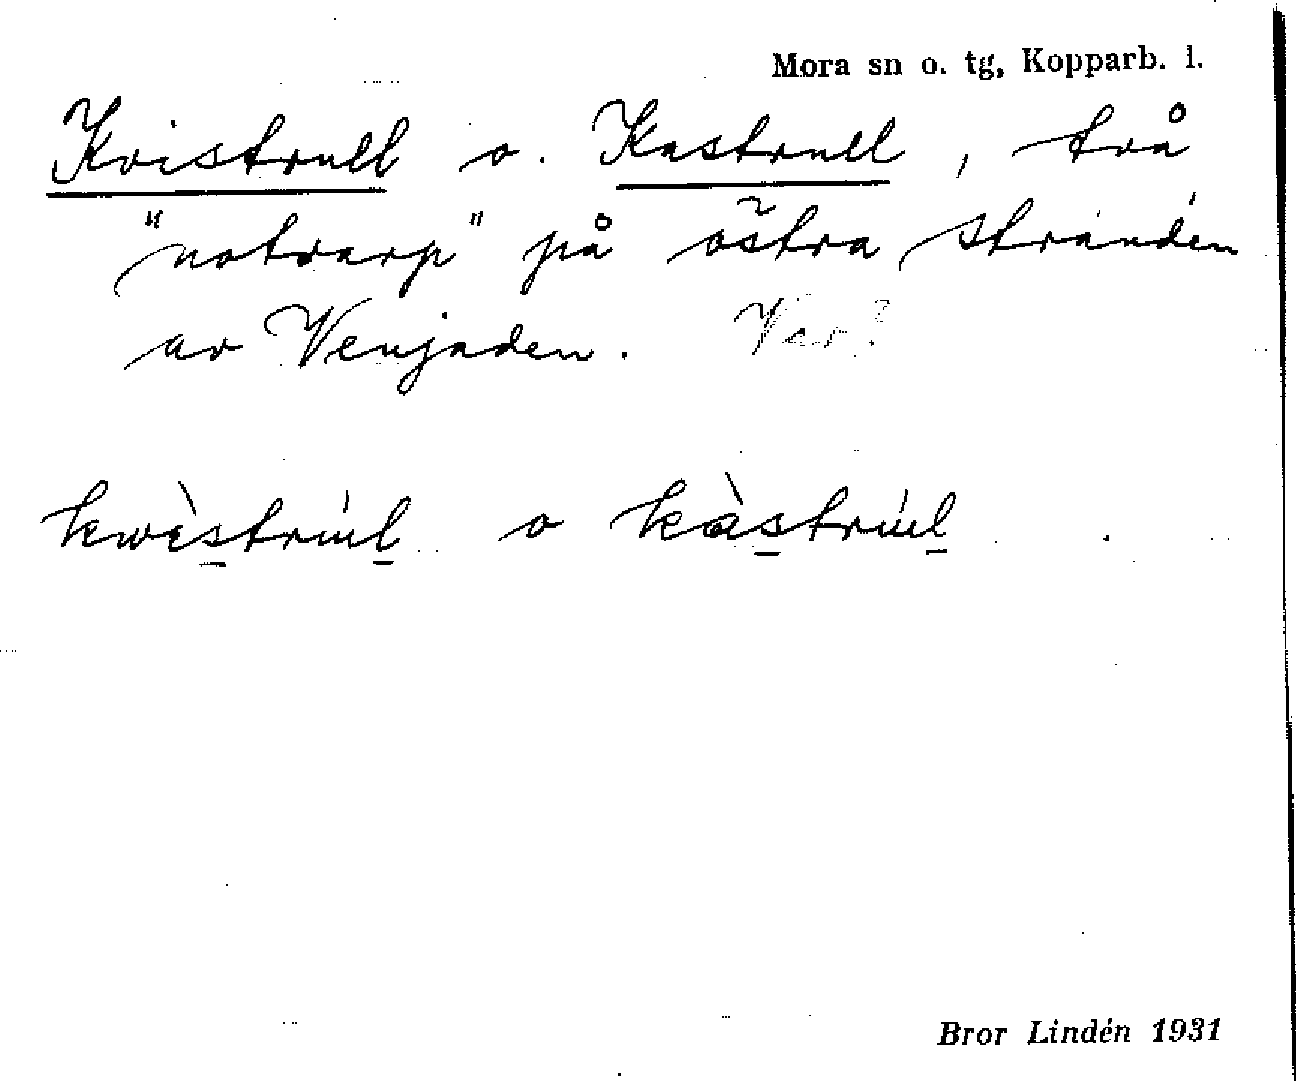 Mora sn o. tg, Kopparb. l.
Kvistrull o. Kastrull, två
"notvarp" på östra stranden
av Venjaden. Var?
kwèstrúl o kàstrúl
Bror Lindén 1931